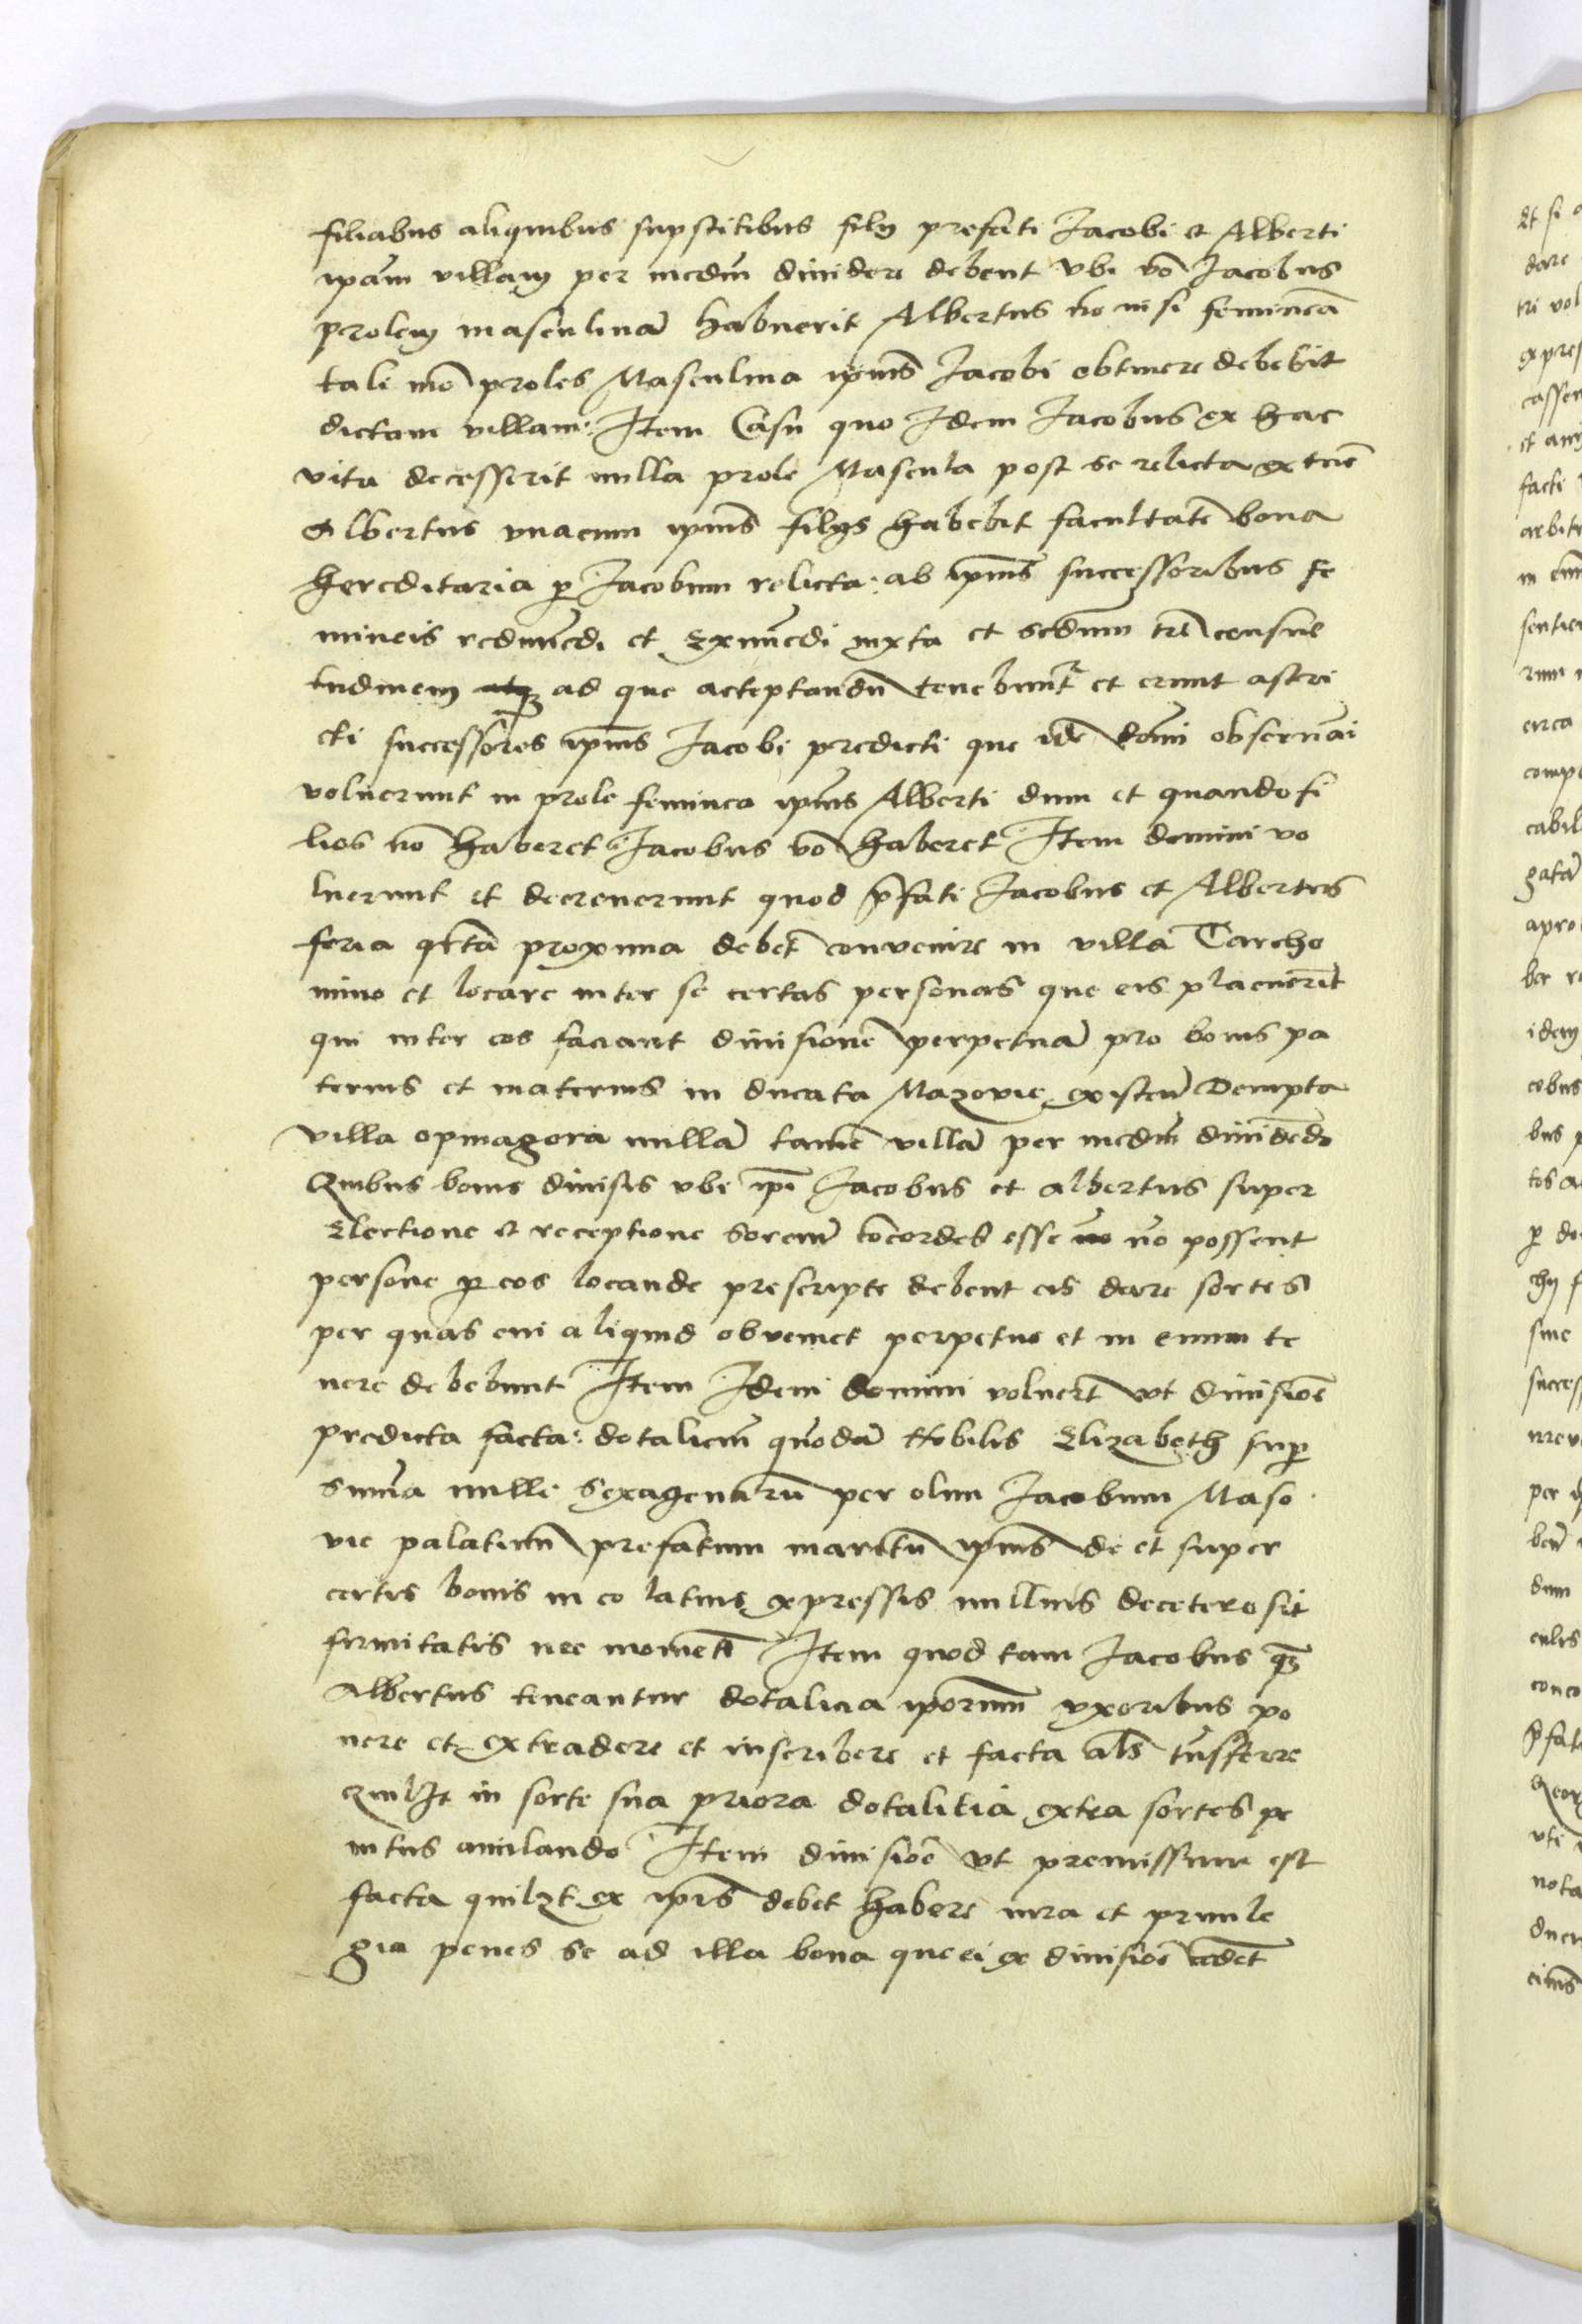 filiabus aliquibus supstitibus filij prefati Jacobi et Alberti
ipam villam per mediu dividere debent vbi vo Jacobus
prolem masculina habuerit Albertus no nisi femineã
tali mo proles Masculina ipius Jacobi obtinere debebit
dictam villam: Item Casu quo Idem Jacobus ex hac
vita decesserit nulla prole Mascula post se relicta extuc
Albertus vnacum ipius filijs habebit facultate bona
hereditaria p Jacobum relicta: ab ipius successoribus fe
mineis redimedi et Eximedi iuxta et scdum tre consue
tudinem ad que acceptandu tenebunt et erunt astri
cti successores ipius Jacobi predicti que ide domi obseruai
voluerunt in prole feminea ipius Alberti dum et quando fi
lios no haberet Jacobus vo haberet Item domini vo
luerunt et decreuerunt quod pfati Jacobus et Albertus
feria qrta proxima debet convenire in villa Tarcho
mino et locare inter se certas personas que eis placuerit
qui inter eos faciant divisione perpetua pro bonis pa
ternis et maternis in ducatu Mazovie existen Dempta
villa opinagora nulla tame villa per mediu dividedo
Quibus bonis divisis vbi ipi Jacobus et albertus super
Electione et receptione sorcium cocordes esse no possent
persone p eos locande prescripte debent eis dare sortes
per quas cui aliquid obveniet perpetue et in euum te
nere debebunt Item Idem domini voluert vt divisioe
predicta facta: dotalicium quodã Nobilis Elizabeth sup
suma mille sexagenarũ per olim Jacobum Maso
vie palatinũ prefatum maritũ ipius de et super
certis bonis in eo latius expressis nullius decetero sit
firmitatis nec momenti Item quod tam Jacobus qz
Albertus teneantur dotalicia iporum vxoribus po
nere et extradere et inscribere et facta als tnsferre
quilzt in sorte sua priora dotalitia extra sortes pe
nitus anilando Item divisioe vt premissum est
facta quilzt ex ipis debet habere iura et privile
gia penes se ad illa bona que ei ex divisioe cedet